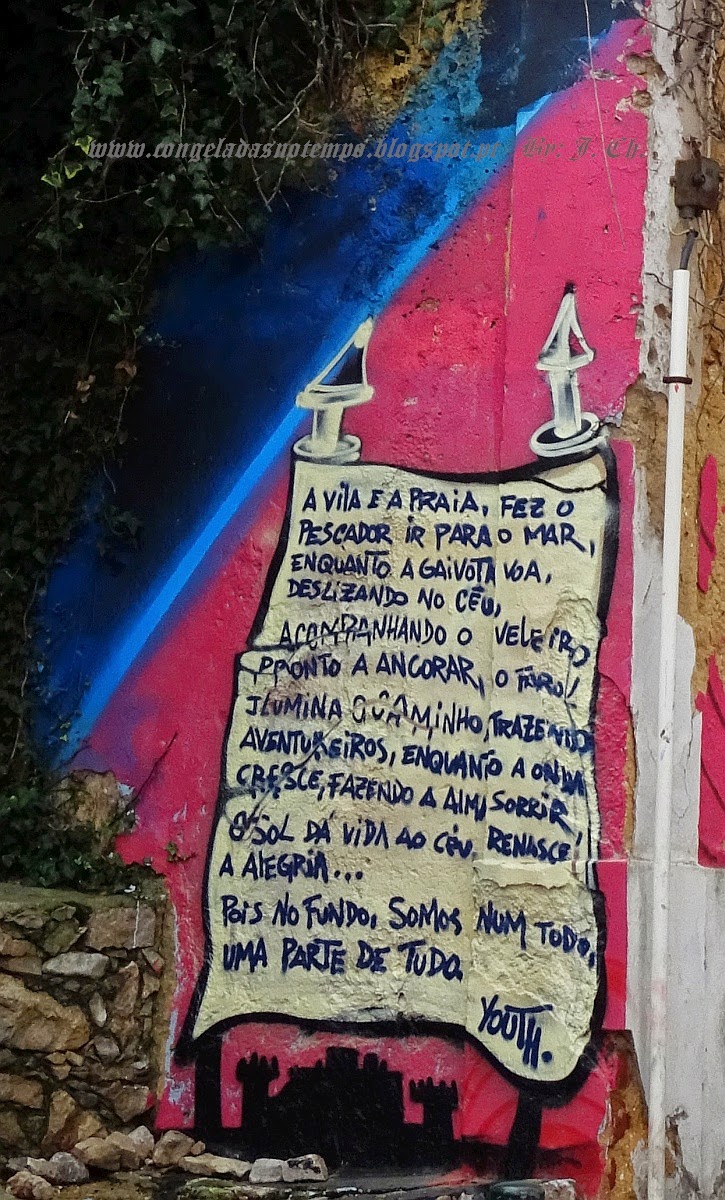 www.congeladasnotempo.blogspot.pt By: J. Ch.
A VILA E A PRAIA, FEZ O
PESCADOR IR PARA O MAR,
ENQUANTO A GAIVOTA VOA,
DESLIZANDO NO CÉU,
ACOMPANHANDO O VELEIRO
PRONTO A ANCORAR, O FAROL
ILUMINA O CAMINHO, TRAZENDO
AVENTUREIROS, ENQUANTO A ONDA
CRESCE, FAZENDO A ALMA SORRIR!
O SOL DÁ VIDA AO CÉU, RENASCE
A ALEGRIA...
POIS NO FUNDO, SOMOS NUM TODO,
UMA PARTE DE TUDO.
YOUTH.